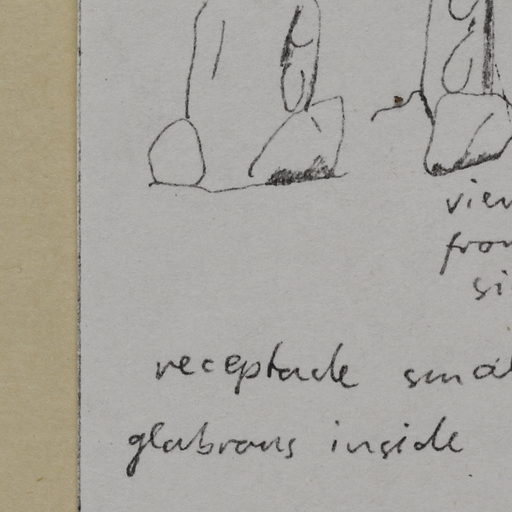 view
from
si
receptacle smal
glabrous inside